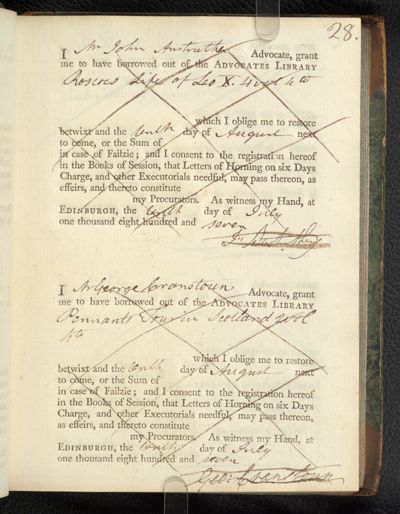 28.
I Mr John Anstruther Advocate, grant
me to have borrowed out of the ADVOCATES LIBRARY
Roscoes Life of Leo X. 4 vol 4to
which I oblige me to restore
betwixt and the tenth day of August next
to come, or the Sum of
in case of Failzie; and I consent to the registration hereof
in the Books of Session, that Letters of Horning on six Days
Charge, and other Executorials needful, may pass thereon, as
effeirs, and thereto constitute
my Procurators. As witness my Hand, at
EDINBURGH, the tenth day of July
one thousand eight hundred and seven
I Mr George Cranstoun Advocate, grant
me to have borrowed out of the ADVOCATES LIBRARY
Pennants Tour in Scotland 2 vol
4to
which I oblige me to restore
betwixt and the tenth day of August next
to come, or the Sum of
in case of Failzie; and I consent to the registration hereof
in the Books of Session, that Letters of Horning on six Days
Charge, and other Executorials needful, may pass thereon,
as effeirs, and thereto constitute
my Procurators. As witness my Hand, at
EDINBURGH, the tenth day of July
one thousand eight hundred and seven
Geo: Cranstoun